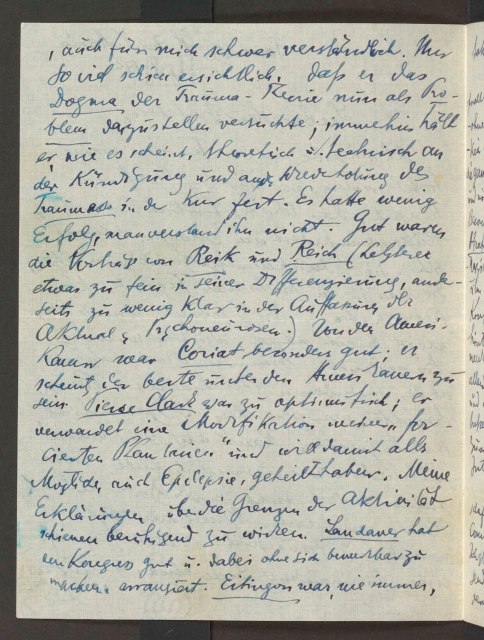 , auch für mich schwer verständlich. Nur
so viel schien ersichtlich, daß er das
Dogma der Trauma-Theorie nun als Pro-
blem darzustellen versuchte; immerhin hält
er, wie es scheint, theoretisch u. technisch an
der Kündigung und an der Wiederholung des
Traumas in der Kur fest. Es hatte wenig
Erfolg, man verstand ihn nicht. Gut waren
die Vorträge von Reik und Reich (Letzterer
etwas zu fein in seiner Differenzierung, ander-
seits zu wenig klar in der Auffassung der
Aktual, Psychoneurosen.) Von den Ameri-
kanern war Coriat besonders gut; er
scheint der beste unter den Amerikanern zu
sein. Pierce Clark war zu optimistisch; er
verwendet eine Modifikation meiner "for-
cierten Phantasien" und will damit alles
Mögliche, auch Epilepsie, geheilt haben. Meine
Erklärungen über die Grenzen der Aktivität
schienen beruhigend zu wirken. Landauer hat
den Kongress gut u. dabei ohne sich bemerkbar zu
machen arrangiert. Eitingon war, wie immer,